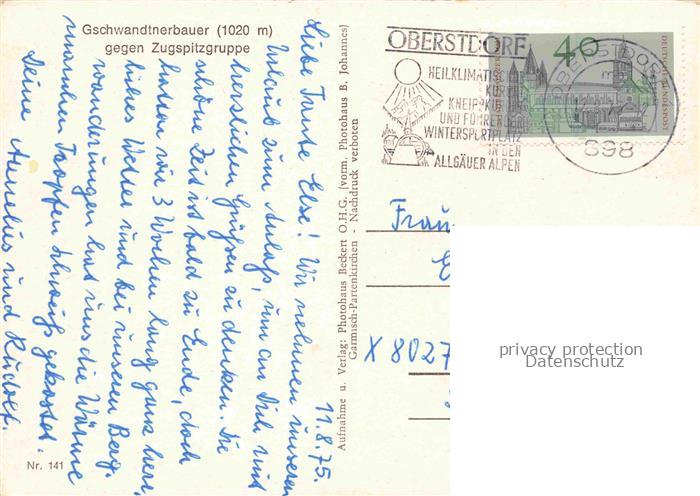 Gschwandtnerbauer (1020 m)
gegen Zugspitzgruppe
11.8.75.
Liebe Tante Else! Wir nehmen unseren
Urlaub zum Anlaß, um an Dich mit
herzlichen Grüßen zu denken. Die
schöne Zeit ist bald zu Ende, doch
hatten wir 3 Wochen lang ganz herr,
liches Wetter und bei unseren Berg,
wanderungen hat uns die Wärme
manchen Tropfen Schweiß gekostet.
Deine Annelies und Rudolf.
Nr. 141
Aufnahme u. Verlag: Photohaus Beckert O.H.G. (vorm. Photohaus B. Johannes)
Garmisch-Partenkirchen - Nachdruck verboten
OBERSTDORF
HEILKLIMATISCHER
KURORT
KNEIPPKURORT
UND FÜHRENDER
WINTERSPORTPLATZ
IN DEN
ALLGÄUER ALPEN
40
DEUTSCHE BUNDESPOST
OBERSTDORF
898
Frau
X 8027
privacy protection
Datenschutz